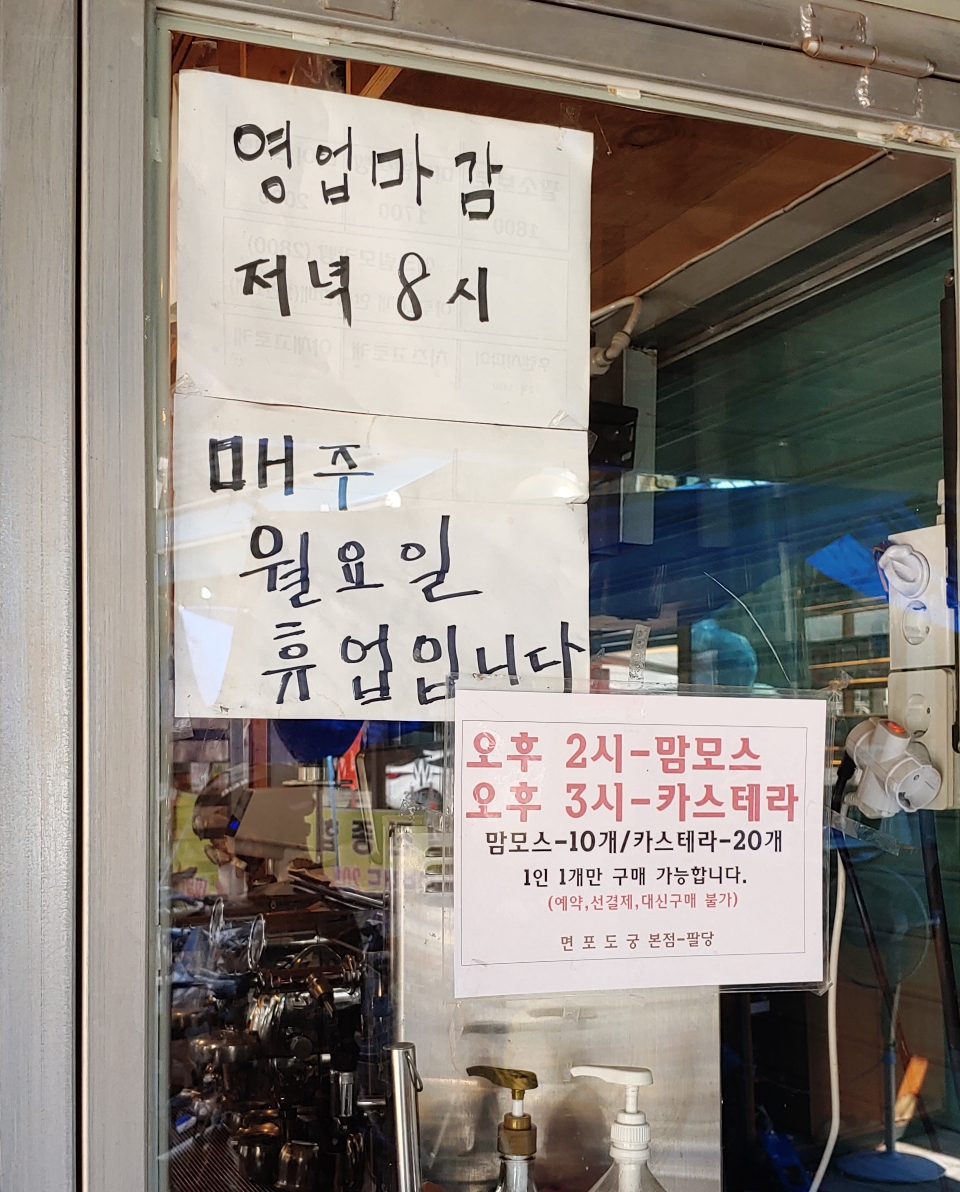 영업마감
저녁 8시
매주
월요일
휴업입니다
오후 2시-맘모스
오후 3시-카스테라
맘모스-10개/카스테라-20개
1인 1개만 구매 가능합니다.
(예약,선결제,대신구매 불가)
면포도궁 본점-팔당